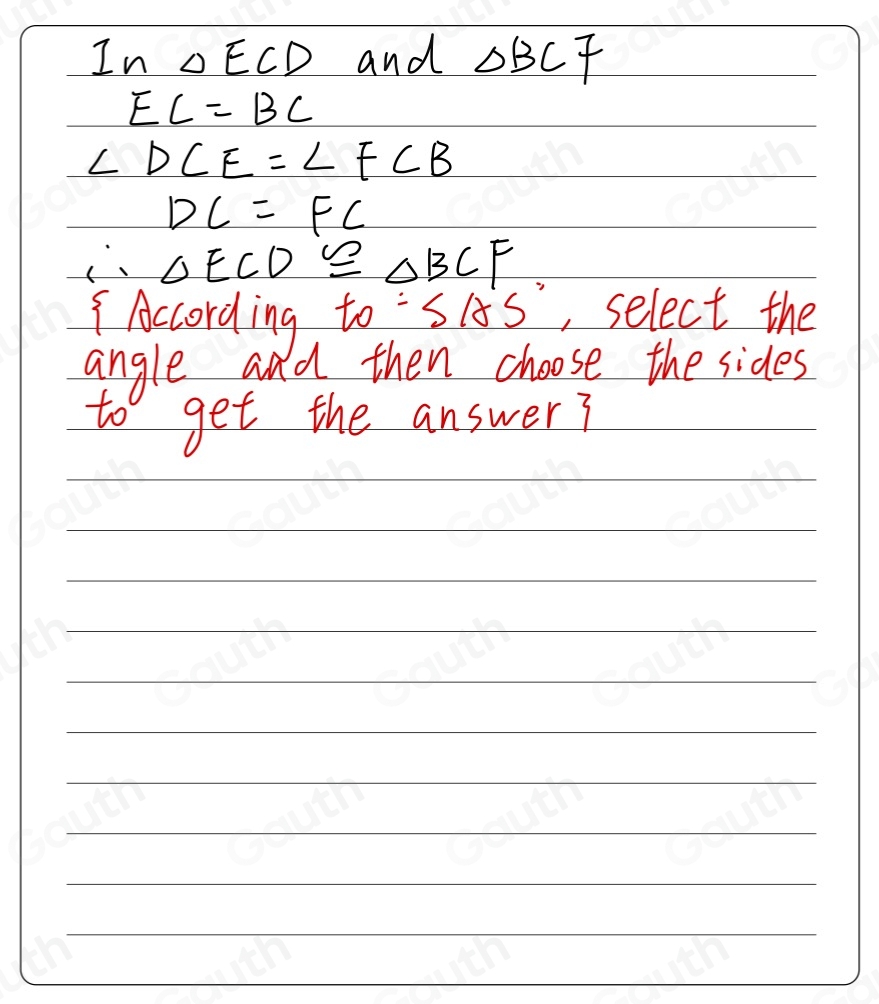 In △ECD and △BCF
EC = BC
∠DCE = ∠FCB
DC = FC
∴ △ECD ≌ △BCF
{According to "SAS", select the
angle and then choose the sides
to get the answer}